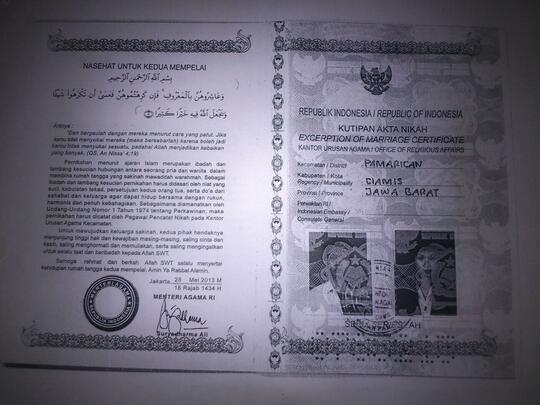 NASEHAT UNTUK KEDUA MEMPELAI
بِسْمِ اللهِ الرَّحْمٰنِ الرَّحِيْمِ
وَعَاشِرُوْهُنَّ بِالْمَعْرُوْفِ فَاِنْ كَرِهْتُمُوْهُنَّ فَعَسٰى اَنْ تَكْرَهُوْا شَيْئًا
وَيَجْعَلَ اللهُ فِيْهِ خَيْرًا كَثِيْرًا
Artinya :
"Dan bergaulah dengan mereka menurut cara yang patut. Jika
kamu tidak menyukai mereka (maka bersabarlah) karena boleh jadi
kamu tidak menyukai sesuatu, padahal Allah menjadikan kebaikan
yang banyak. (QS. An Nissa' 4;19)
Pernikahan menurut ajaran Islam merupakan ibadah dan
lambang kesucian hubungan antara seorang pria dan wanita dalam
membina rumah tangga yang sakinah mawaddah warahmah. Sebagai
ibadah dan lambang kesucian pernikahan harus didasari oleh niat yang
suci, kebulatan tekad, persetujuan kedua orang tua, serta do'a dari
sahabat dan keluarga agar dapat hidup bersama dengan rukun,
harmonis dan penuh kebahagiaan. Sebagaimana diamanatkan oleh
Undang-Undang Nomor 1 Tahun 1974 tentang Perkawinan, maka
pernikahan harus dicatat oleh Pegawai Pencatat Nikah pada Kantor
Urusan Agama Kecamatan.
Untuk mewujudkan keluarga sakinah, kedua pihak hendaknya
menjunjung tinggi hak dan kewajiban masing-masing, saling cinta dan
kasih, saling menghormati dan memuliakan, serta saling mengingatkan
untuk selalu taat dan beribadah kepada Allah SWT.
Semoga rahmat dan berkah Allah SWT selalu menyertai
kehidupan rumah tangga kedua mempelai, Amin Ya Rabbal Alamin.
Jakarta, 28 Mei 2013 M
18 Rajab 1434 H
MENTERI AGAMA RI
Suryadharma Ali
REPUBLIK INDONESIA / REPUBLIC OF INDONESIA
KUTIPAN AKTA NIKAH
EXCERPTION OF MARRIAGE CERTIFICATE
KANTOR URUSAN AGAMA / OFFICE OF RELIGIOUS AFFAIRS
Kecamatan / District PAMARICAN
Kabupaten / Kota
Regency / Municipality CIAMIS
Provinsi / Province JAWA BARAT
Perwakilan RI /
Indonesian Embassy /
Consulate General